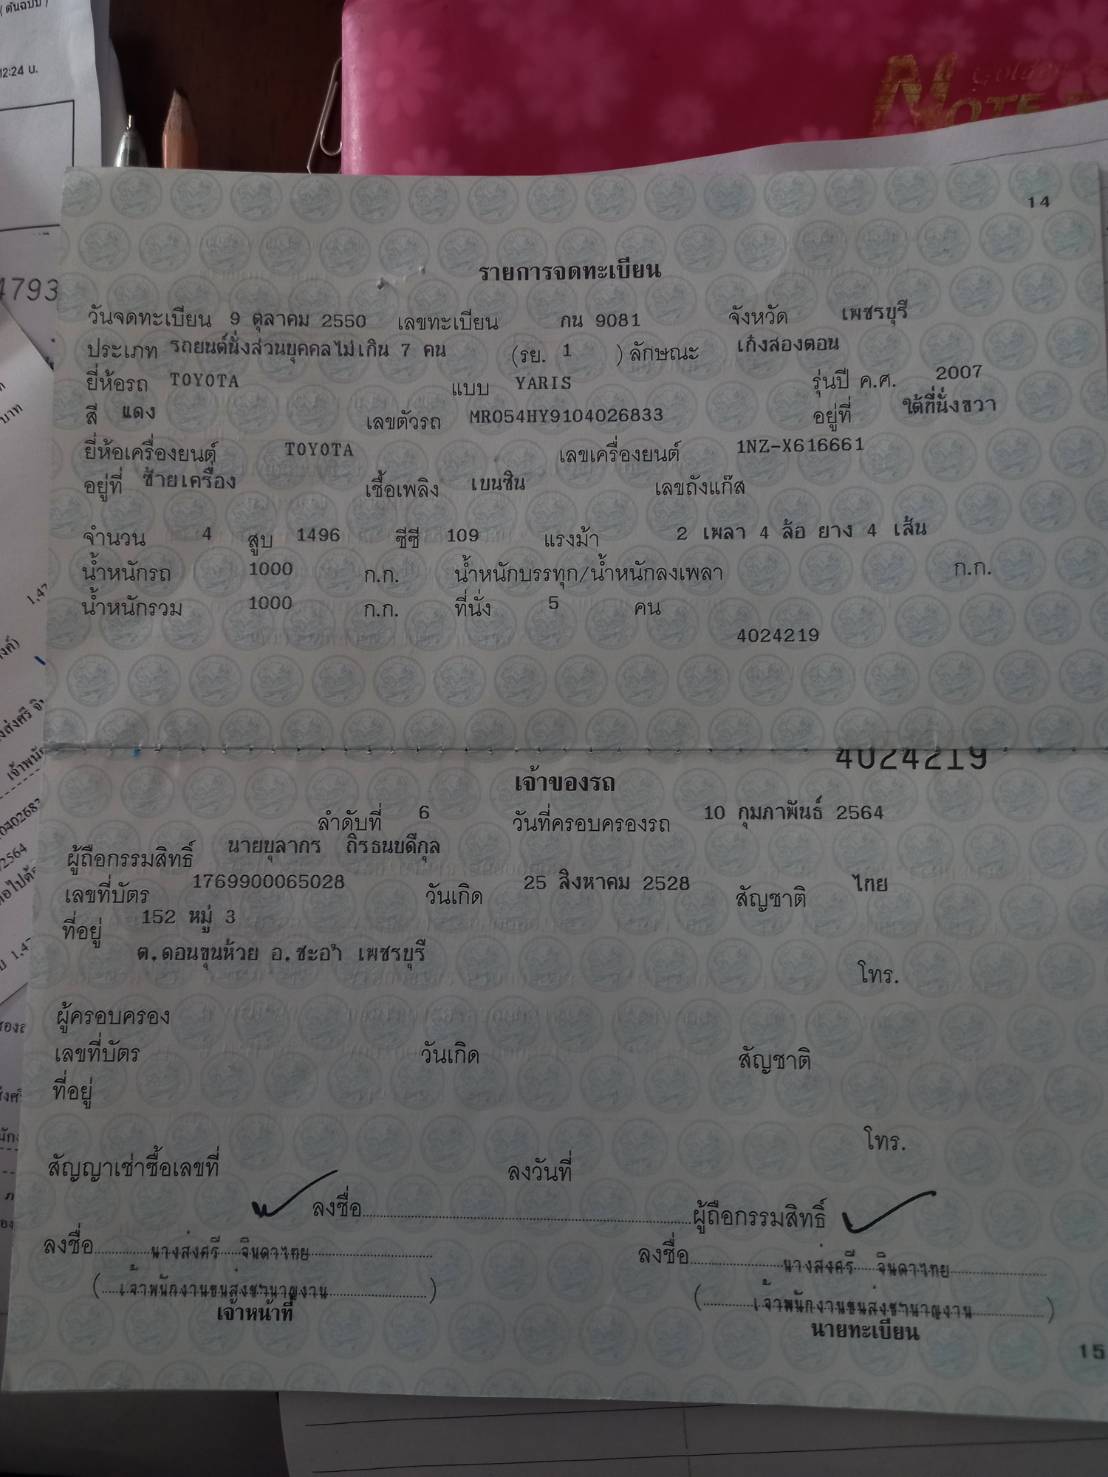 ( ต้นฉบับ )
12:24 น.
Golden
NOTE
4793
14
รายการจดทะเบียน
วันจดทะเบียน 9 ตุลาคม 2550 เลขทะเบียน กน 9081 จังหวัด เพชรบุรี
ประเภท รถยนต์นั่งส่วนบุคคลไม่เกิน 7 คน (รย. 1 ) ลักษณะ เก๋งสองตอน
ยี่ห้อรถ TOYOTA แบบ YARIS รุ่นปี ค.ศ. 2007
สี แดง เลขตัวรถ MR054HY9104026833 อยู่ที่ ใต้ที่นั่งขวา
ยี่ห้อเครื่องยนต์ TOYOTA เลขเครื่องยนต์ 1NZ-X616661
อยู่ที่ ซ้ายเครื่อง เชื้อเพลิง เบนซิน เลขถังแก๊ส
จำนวน 4 สูบ 1496 ซีซี 109 แรงม้า 2 เพลา 4 ล้อ ยาง 4 เส้น
น้ำหนักรถ 1000 ก.ก. น้ำหนักบรรทุก/น้ำหนักลงเพลา ก.ก.
น้ำหนักรวม 1000 ก.ก. ที่นั่ง 5 คน
4024219
4024219
เจ้าของรถ
ลำดับที่ 6 วันที่ครอบครองรถ 10 กุมภาพันธ์ 2564
ผู้ถือกรรมสิทธิ์ นายบุลากร ถิรธนบดีกุล
เลขที่บัตร 1769900065028 วันเกิด 25 สิงหาคม 2528 สัญชาติ ไทย
ที่อยู่ 152 หมู่ 3
ต.ดอนขุนห้วย อ.ชะอำ เพชรบุรี
โทร.
ผู้ครอบครอง
เลขที่บัตร วันเกิด สัญชาติ
ที่อยู่
โทร.
สัญญาเช่าซื้อเลขที่ ลงวันที่
ลงชื่อ ผู้ถือกรรมสิทธิ์
ลงชื่อ นางส่งศรี จินดาไทย ลงชื่อ นางส่งศรี จินดาไทย
( เจ้าพนักงานขนส่งชำนาญงาน ) ( เจ้าพนักงานขนส่งชำนาญงาน )
เจ้าหน้าที่ นายทะเบียน
15